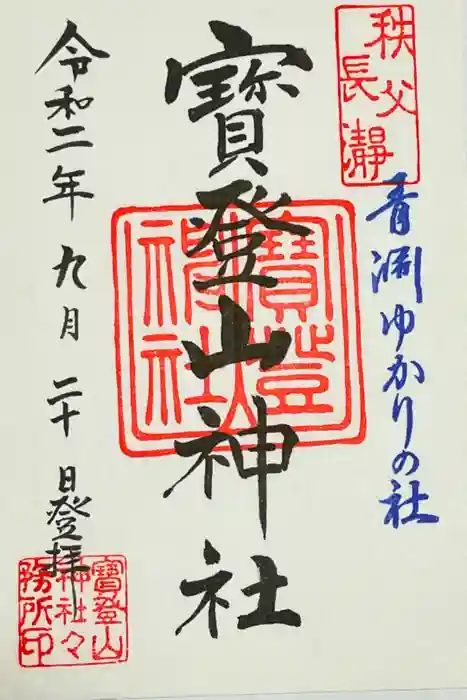 秩父
長瀞
青淵ゆかりの社
寳登山神社
寳登
山神
社
令和二年九月二十日登拝
寳登山
神社々
務所印